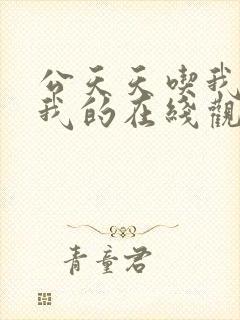 公天天喫我
我的在綫觀
青童君